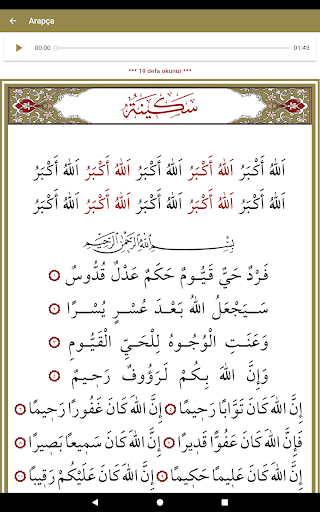 Arapça
00:00
01:43
*** 19 defa okunur ***
سَكِينَةْ
اَللهُ أَكْبَرُ اَللهُ أَكْبَرُ اَللهُ أَكْبَرُ اَللهُ أَكْبَرُ اَللهُ أَكْبَرُ
اَللهُ أَكْبَرُ اَللهُ أَكْبَرُ اَللهُ أَكْبَرُ اَللهُ أَكْبَرُ اَللهُ أَكْبَرُ
بِسْمِ اللهِ الرَّحْمٰنِ الرَّحِيمِ
فَرْدٌ حَيٌّ قَيُّومٌ حَكَمٌ عَدْلٌ قُدُّوسٌ
سَيَجْعَلُ اللهُ بَعْدَ عُسْرٍ يُسْرًا
وَعَنَتِ الْوُجُوهُ لِلْحَيِّ الْقَيُّومِ
وَإِنَّ اللهَ بِكُمْ لَرَؤُوفٌ رَحِيمٌ
إِنَّ اللهَ كَانَ تَوَّابًا رَحِيمًا إِنَّ اللهَ كَانَ غَفُورًا رَحِيمًا
فَإِنَّ اللهَ كَانَ عَفُوًّا قَدِيرًا إِنَّ اللهَ كَانَ سَمِيعًا بَصِيرًا
إِنَّ اللهَ كَانَ عَلِيمًا حَكِيمًا إِنَّ اللهَ كَانَ عَلَيْكُمْ رَقِيبًا